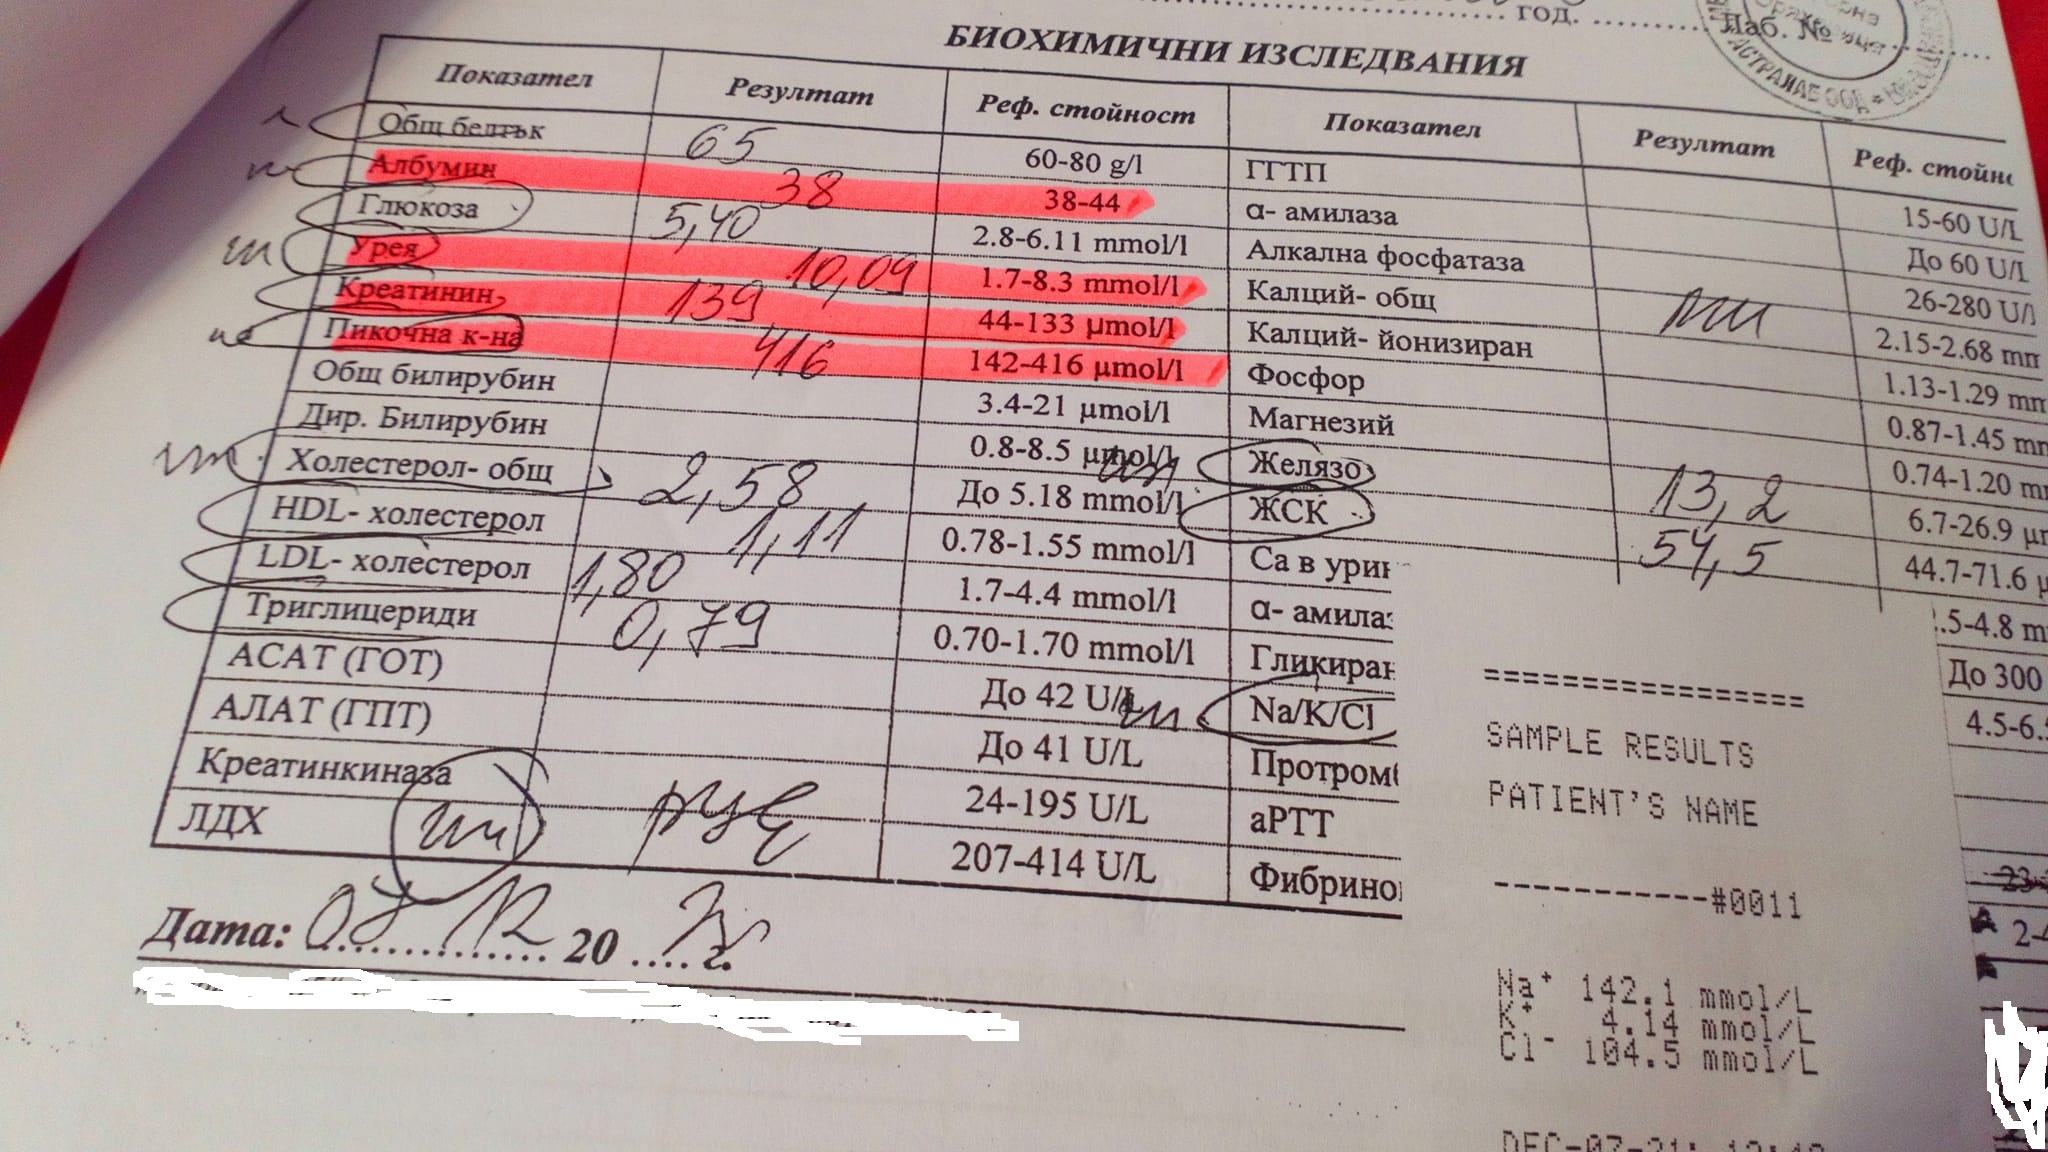 год. Лаб. №
АСТРАЛАБ ООД
БИОХИМИЧНИ ИЗСЛЕДВАНИЯ
Показател Резултат Реф. стойност Показател Резултат Реф.
Общ белтък 65 60-80 g/l ГГТП 15-60 U/L
Албумин 38 38-44 α- амилаза До 60 U/L
Глюкоза 5,40 2.8-6.11 mmol/l Алкална фосфатаза 26-280
Урея 10,09 1.7-8.3 mmol/l Калций- общ 2.15-2.68
Креатинин 139 44-133 µmol/l Калций- йонизиран 1.13-1.29
Пикочна к-на 416 142-416 µmol/l Фосфор 0.87-1.45
Общ билирубин 3.4-21 µmol/l Магнезий 0.74-1.20
Дир. Билирубин 0.8-8.5 µmol/l Желязо 13,2 6.7-26.9
Холестерол- общ 2,58 До 5.18 mmol/l ЖСК 54,5 44.7-71.6
HDL- холестерол 1,11 0.78-1.55 mmol/l Ca в .5-4.8
LDL- холестерол 1,80 1.7-4.4 mmol/l α- До 300
Триглицериди 0,79 0.70-1.70 mmol/l
АСАТ (ГОТ) До 42 U/L Na/K/Cl
АЛАТ (ГПТ) До 41 U/L
Креатинкиназа 24-195 U/L аРТТ
ЛДХ 207-414 U/L
Дата: 12 20 г.
================
SAMPLE RESULTS
PATIENT'S NAME
-----------#0011
Na⁺ 142.1 mmol/L
K⁺ 4.14 mmol/L
Cl⁻ 104.5 mmol/L
DEC-07-21